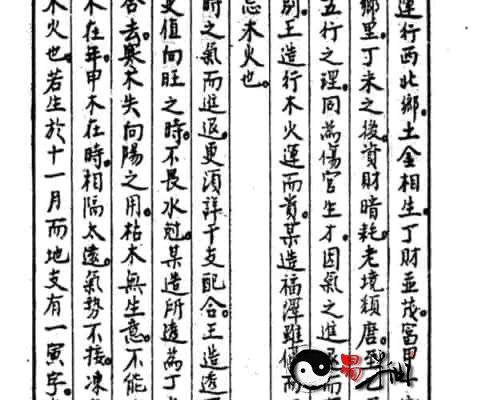 運行西北鄉。土金相生。丁財並茂。富甲
鄉里。丁未之後。資財暗耗。老境頹唐。
五行之理。同為傷官生才。因氣之進退而
別。王造行木火運而貴。某造福澤雖
忘木火也。
時之氣而進退。更須詳干支配合。王造透
更值向旺之時。不畏水尅。某造所透為丁
去。寒木失向陽之用。枯木無生意。不能
木在年。申木在時。相隔太遠。氣勢不接。凍
木火也。若生於十一月而地支有一寅字。
易